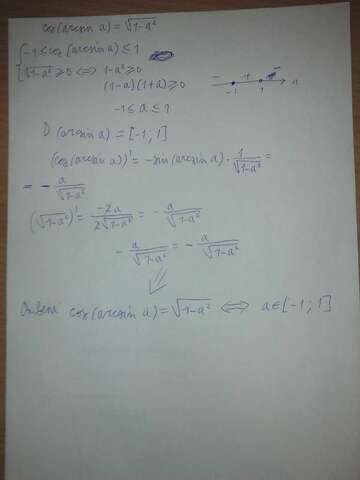 cos(arcsin a) = √(1-a²)
{ -1 ≤ cos(arcsin a) ≤ 1
{ √(1-a²) ≥ 0 ⟺ 1-a² ≥ 0
(1-a)(1+a) ≥ 0
- + -
-1 1
-1 ≤ a ≤ 1
D(arcsin a) = [-1; 1]
(cos(arcsin a))' = -sin(arcsin a) · 1/√(1-a²) =
= - a/√(1-a²)
(√(1-a²))' = -2a/(2√(1-a²)) = - a/√(1-a²)
- a/√(1-a²) = - a/√(1-a²)
⇓
cos(arcsin a) = √(1-a²) ⟺ a ∈ [-1; 1]